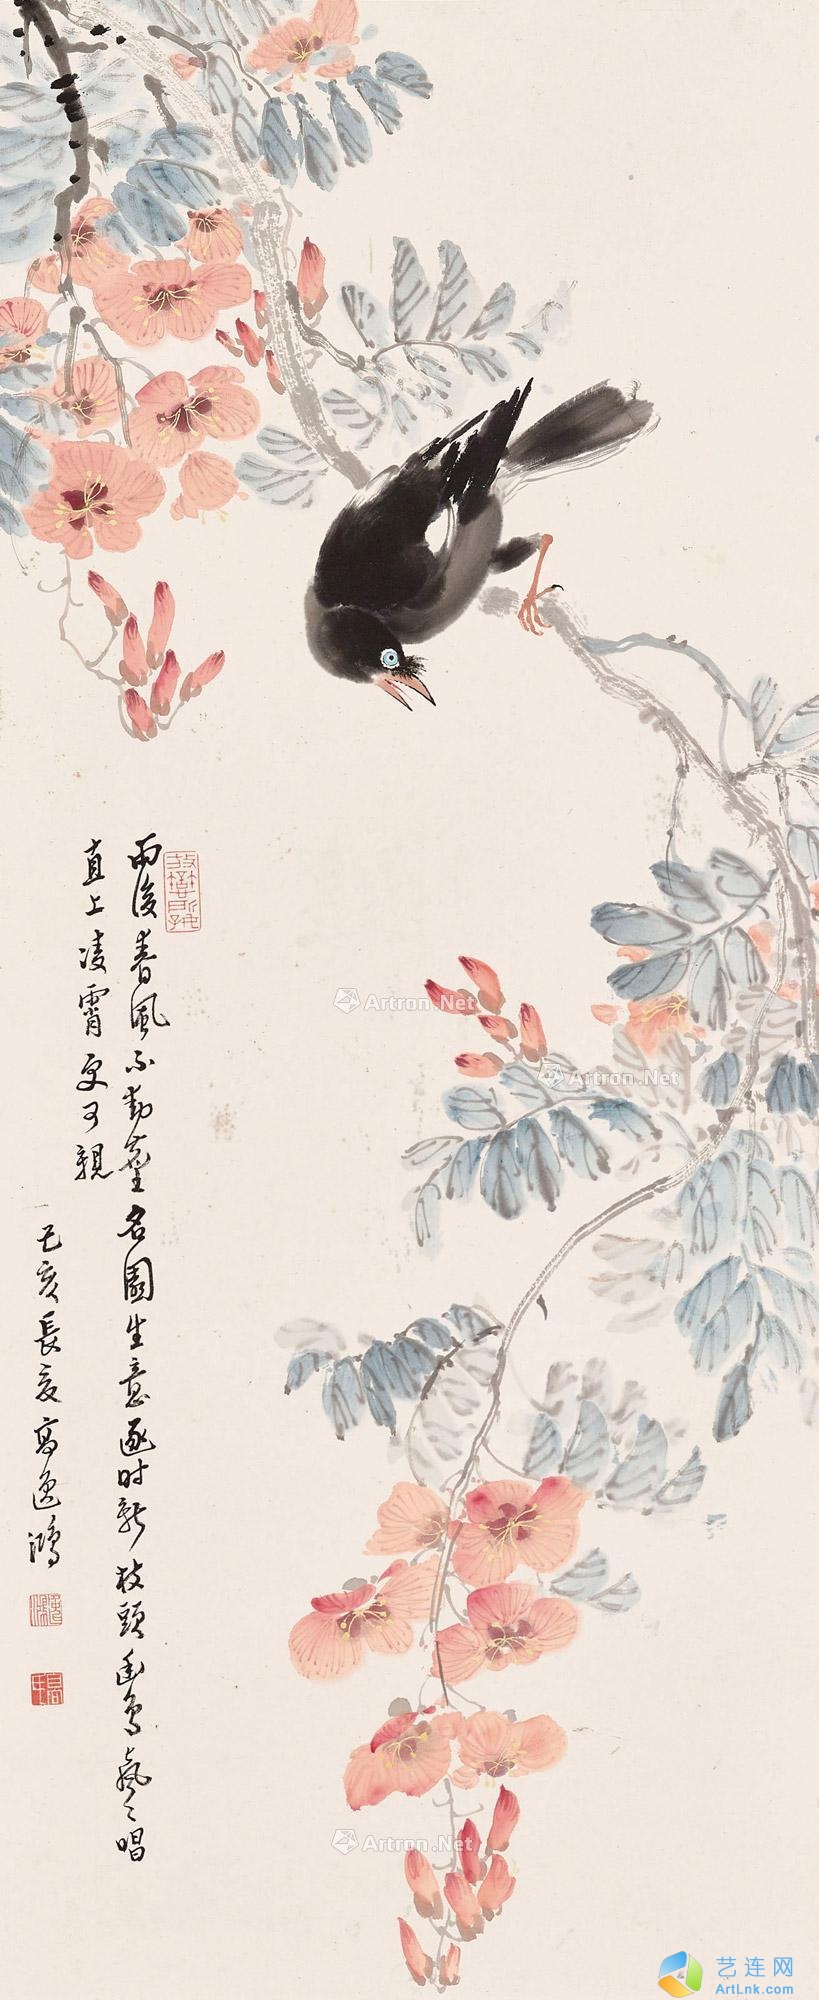 雨後春風不動塵名園生意逐時新枝頭幽鳥聲〻唱
直上凌霄更可親
己亥長夏高逸鴻
Artron.Net
Artron.Net
Artron.Net
艺连网
ArtLnk.com